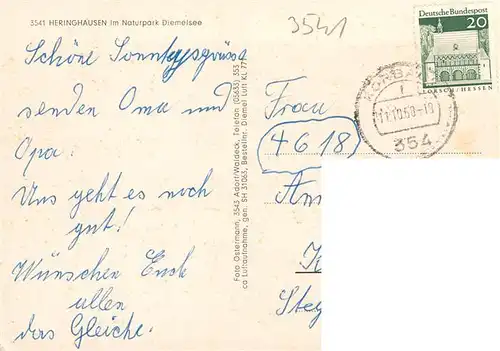 3541 HERINGHAUSEN im Naturpark Diemelsee
3541
Deutsche Bundespost
20
LORSCH/HESSEN
KORBA
354
Schöne Sonntagsgrüsse
senden Oma und
Opa.
Uns geht es noch
gut!
Wünschen Euch
allen
das Gleiche.
Foto Ostermann, 3543 Adorf/Waldeck, Telefon (05633) 353
ca Luftaufnahme, gen. SH 31063, Bestellnr. Diemel Luft KL 771
Frau
4618
Am
Steg